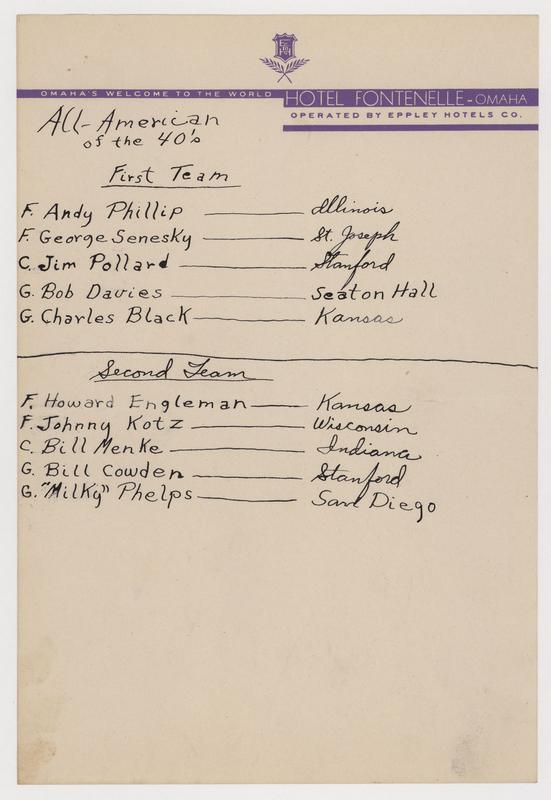 OMAHA'S WELCOME TO THE WORLD
HOTEL FONTENELLE - OMAHA
OPERATED BY EPPLEY HOTELS CO.
All-American
of the 40's
First Team
F. Andy Phillip — Illinois
F. George Senesky — St. Joseph
C. Jim Pollard — Stanford
G. Bob Davies — Seaton Hall
G. Charles Black — Kansas
Second Team
F. Howard Engleman — Kansas
F. Johnny Kotz — Wisconsin
C. Bill Menke — Indiana
G. Bill Cowden — Stanford
G. "Milky" Phelps — San Diego